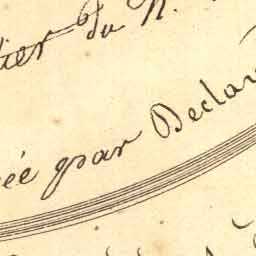 tier du N.
ée par Decla